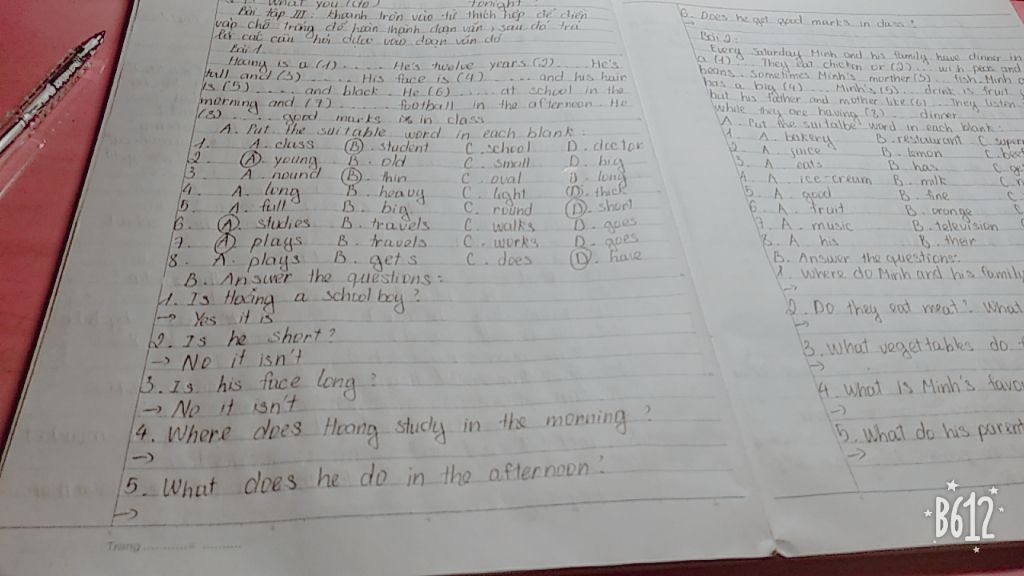 What you (do) tonight?
Bài tập III: khoanh tròn vào từ thích hợp để điền
vào chỗ trống để hoàn thành đoạn văn, sau đó trả
lời các câu hỏi dựa vào đoạn văn đó
Bài 1
Hoang is a (1) .... He's twelve years (2) .... He's
tall and (3) ..... His face is (4) ..... and his hair
is (5) ..... and black. He (6) ..... at school in the
morning and (7) ..... football in the afternoon. He
(8) ..... good marks in class
A. Put the suitable word in each blank:
1. A. class B. student C. school D. doctor
2. A. young B. old C. small D. big
3. A. round B. thin C. oval D. long
4. A. long B. heavy C. light D. thick
5. A. full B. big C. round D. short
6. A. studies B. travels C. walks D. goes
7. A. plays B. travels C. works D. goes
8. A. plays B. gets C. does D. have
B. Answer the questions:
1. Is Hoang a schoolboy?
→ Yes it is
2. Is he short?
→ No it isn't
3. Is his face long?
→ No it isn't
4. Where does Hoang study in the morning?
→
5. What does he do in the afternoon?
→
Trang
6. Does he get good marks in class?
→
Bài 2:
Every Saturday Minh and his family have dinner in
a (1) .... They eat chicken or (2) .... with peas and
beans. sometimes Minh's morther (3) .... fish. Minh
has a big (4) .... Minh's (5) .... drink is fruit
but his father and mother like (6) .... They listen
while they are having (8) .... dinner
A. Put the suitabe word in each blank:
1. A. bakery B. restaurant C.
2. A. juice B. lemon C.
3. A. eats B. has C.
4. A. ice-cream B. milk C.
5. A. good B. fine C.
6. A. fruit B. orange C.
7. A. music B. television C.
8. A. his B. their
B. Answer the questions:
1. Where do Minh and his family
→
2. Do they eat meat? What
→
3. What vegettables do
→
4. What is Minh's
→
5. What do his
→
B612